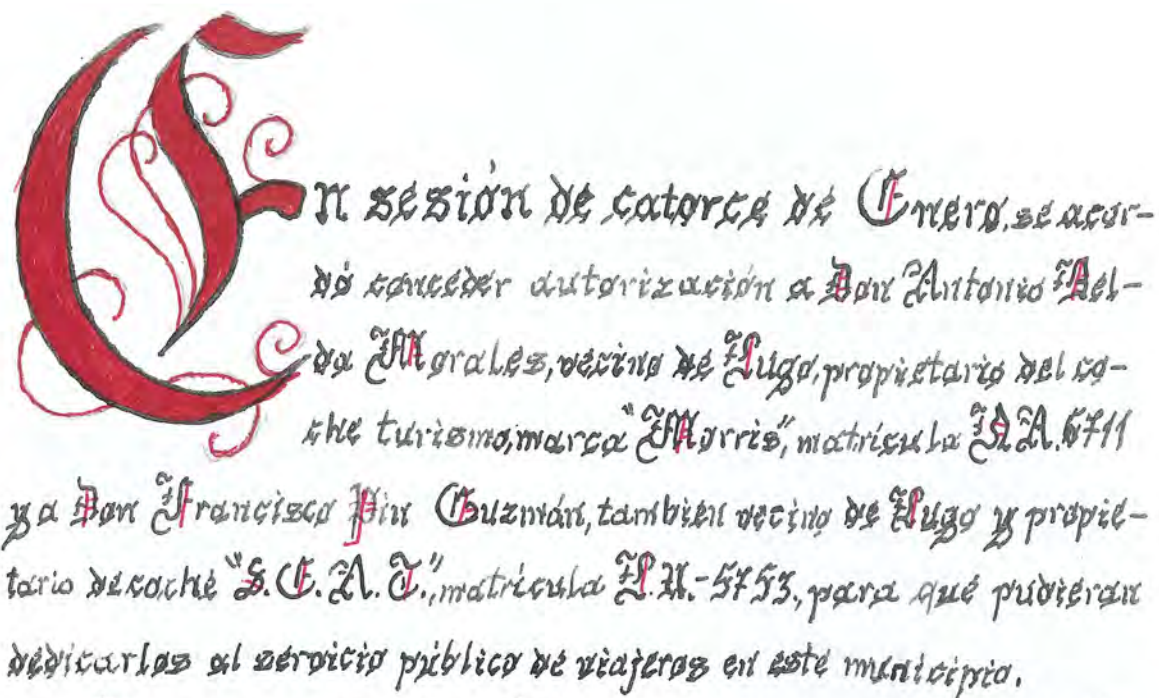 En sesión de catorce de Enero, se acor-
dó conceder autorización a Don Antonio Bel-
da Morales, vecino de Lugo, propietario del co-
che turismo, marca "Morris", matrícula N.A. 6711
y a Don Francisco Pin Guzmán, también vecino de Lugo y propie-
tario de coche "S.E.A.T.", matrícula L.U.-5753, para qué pudieran
dedicarlos al servicio público de viajeros en este municipio.